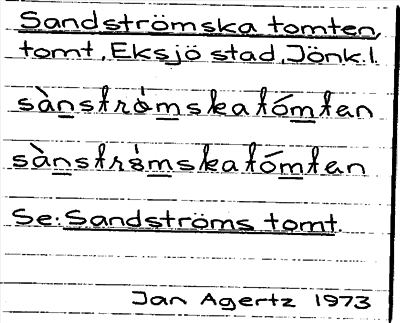 Sandströmska tomten,
tomt, Eksjö stad, Jönk.l.
sànströ̀mskatómtan
sànströ̀mskatómtan
Se: Sandströms tomt.
Jan Agertz 1973